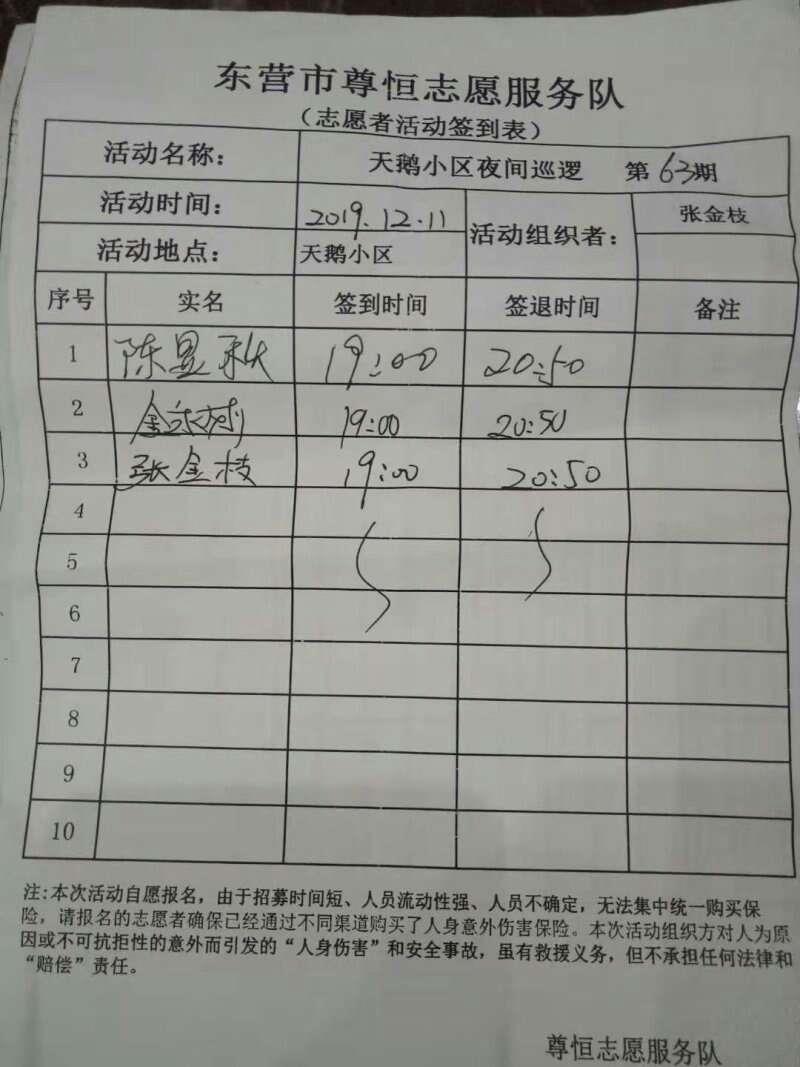 东营市尊恒志愿服务队
（志愿者活动签到表）
活动名称： 天鹅小区夜间巡逻 第63期
活动时间： 2019.12.11 活动组织者： 张金枝
活动地点： 天鹅小区
序号 实名 签到时间 签退时间 备注
1 陈 19:00 20:50
2 19:00 20:50
3 张金枝 19:00 20:50
4
5
6
7
8
9
10
注:本次活动自愿报名，由于招募时间短、人员流动性强、人员不确定，无法集中统一购买保
险，请报名的志愿者确保已经通过不同渠道购买了人身意外伤害保险。本次活动组织方对人为原
因或不可抗拒性的意外而引发的“人身伤害”和安全事故，虽有救援义务，但不承担任何法律和
“赔偿”责任。
尊恒志愿服务队